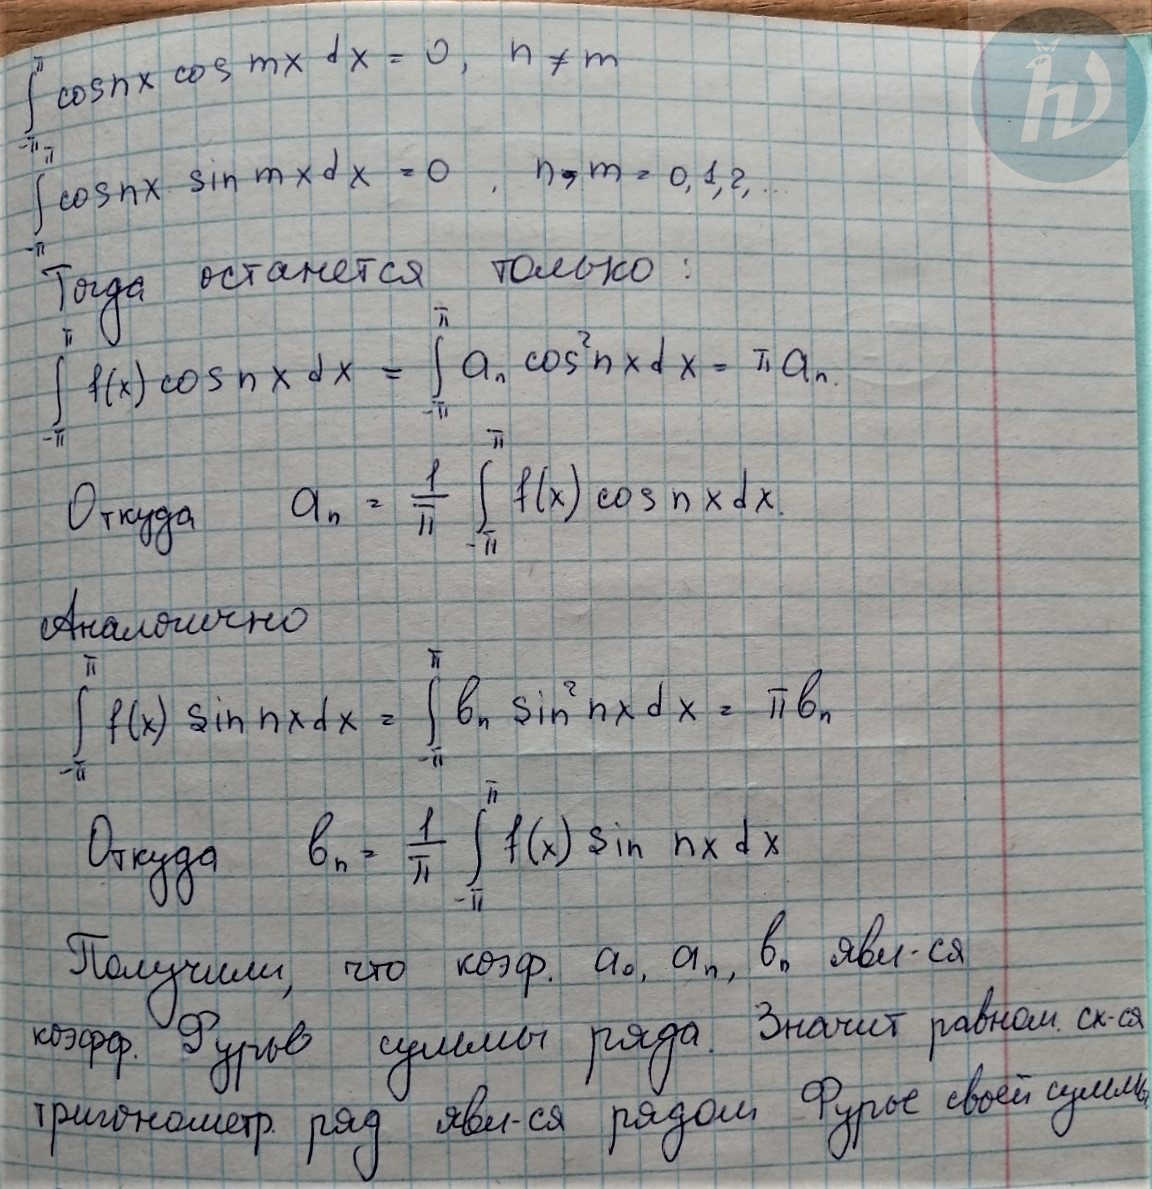 ∫_{-π}^{π} cos nx cos mx dx = 0, n ≠ m
∫_{-π}^{π} cos nx sin mx dx = 0, n, m = 0,1,2,...
Тогда останется только:
∫_{-π}^{π} f(x) cos nx dx = ∫_{-π}^{π} aₙ cos² nx dx = π aₙ.
Откуда aₙ = 1/π ∫_{-π}^{π} f(x) cos nx dx.
Аналогично
∫_{-π}^{π} f(x) sin nx dx = ∫_{-π}^{π} вₙ sin² nx dx = π вₙ
Откуда вₙ = 1/π ∫_{-π}^{π} f(x) sin nx dx
Получили, что коэф. a₀, aₙ, вₙ явл-ся
коэфф. Фурье суммы ряда. Значит равном. сх-ся
тригонометр. ряд явл-ся рядом Фурье своей суммы.